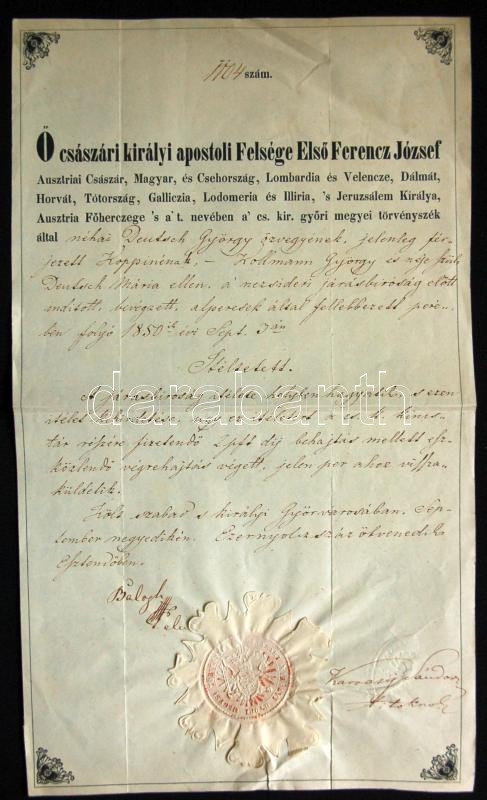 1704 szám.
Ő császári királyi apostoli Felsége Első Ferencz József
Ausztriai Császár, Magyar, és Csehország, Lombardia és Velencze, Dálmát,
Horvát, Tótország, Galliczia, Lodomeria és Illiria, 's Jeruzsálem Királya,
Ausztria Főherczege 's a' t. nevében a' cs. kir. győri megyei törvényszék
által néhai Deutsch György özvegyének, jelenleg fér-
jezett Koppinénak, – Kollmann György és neje szül.
Deutsch Mária ellen, a' nezsideri járásbiróság előtt
indított, bevégzett, alperesek által fellebbezett peré-
ben folyó 1850ik évi Sept. 3án
Itéltetett.
A járásbiróság itélete helyben hagyatik, s ezen
itélet kihirdetése, úgy ez itéletért a cs. k. kincs-
tár részére fizetendő 2 pft díj behajtás mellett esz-
közlendő végrehajtás végett, jelen per ahoz vissza-
küldetik.
Költ szabad s királyi Győr városában. Sep-
tember negyedikén. Ezernyolczszáz ötvenedik
Esztendőben.
Balogh
darabanth
Sándor